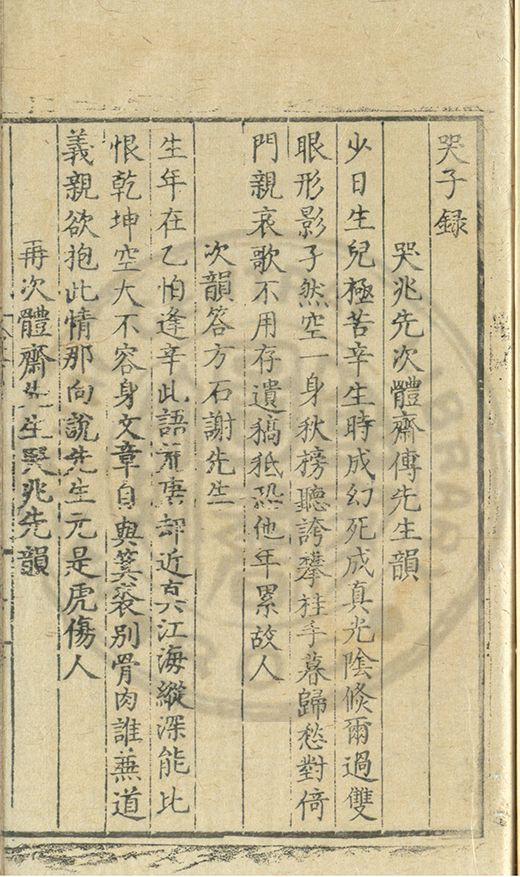 哭子録
哭兆先次體齋傅先生韻
少日生兒極苦辛生時成幻死成真光陰倐爾過雙
眼形影孑然空一身秋榜聽誇攀桂手暮歸愁對倚
門親哀歌不用存遺稿秪恐他年累故人
次韻答方石謝先生
生年在乙怕逢辛此語荒唐却近真江海縱深能比
恨乾坤空大不容身文章自與箕裘別骨肉誰兼道
義親欲抱此情那向說先生元是虎傷人
再次體齋先生哭兆先韻